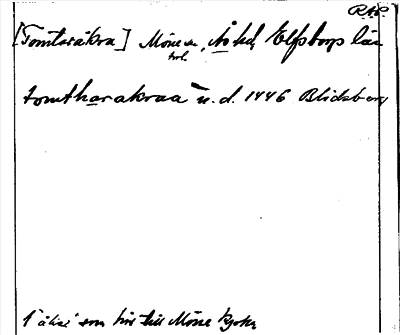 R.A.P.
[Tomtaråkra] Möne sn, Ås hd, Elfsborgs län
tomtharakraa u. d. 1446 Blidsberg
1 åker som hör till Möne kyrka